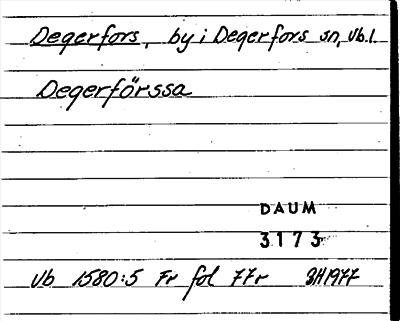 Degerfors, by i Degerfors sn, Vb.l.
Degerförssa
DAUM
3173
Vb 1580:5 Fr fol 77r BH1977